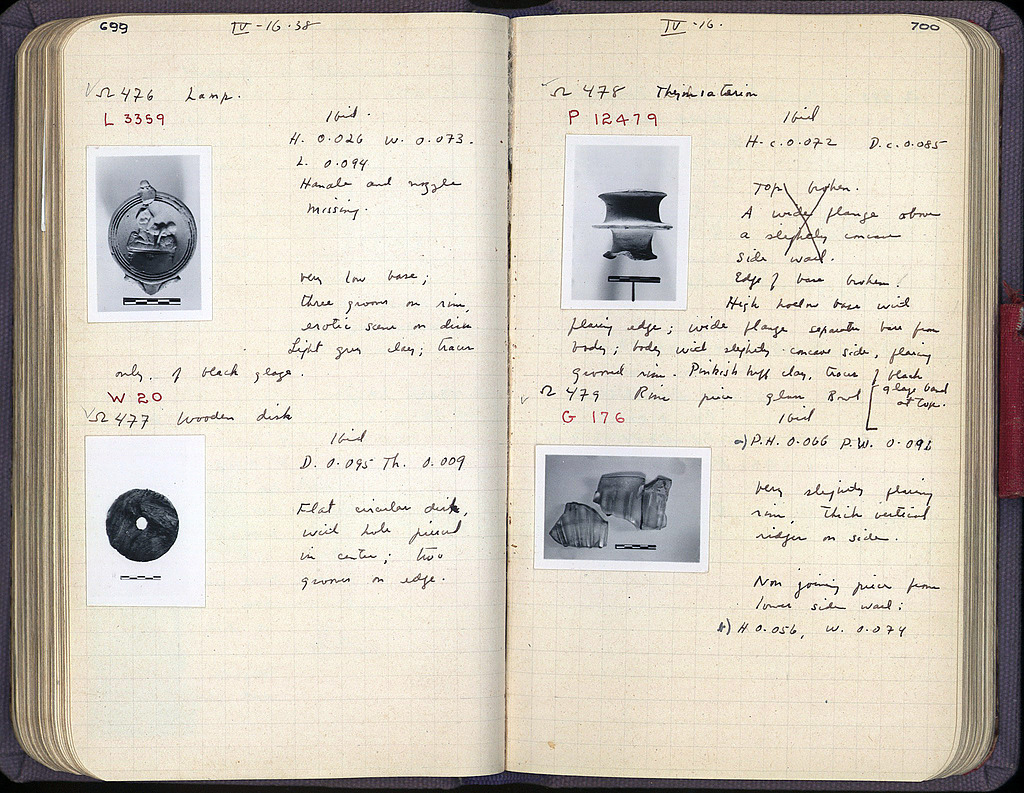 699
IV-16-38
√ Ω 476 Lamp.
L 3359
Ibid.
H. 0.026 W. 0.073.
L. 0.094
Handle and nozzle
missing.
very low base;
three grooves on rim,
erotic scene on disk
Light grey clay; traces
only, of black glaze.
W 20
√ Ω 477 Wooden disk
Ibid
D. 0.095 Th. 0.009
Flat circular disk,
with hole pierced
in center; two
grooves on edge.
IV-16.
700
√ Ω 478 Thymiatarion
P 12479
Ibid
H.c.0.072 D.c.0.085
Top broken.
A wide flange above
a slightly concave
side wall.
Edge of base broken.
High hollow base with
flaring edge; wide flange separates base from
body; body with slightly concave side, flaring
grooved rim. Pinkish buff clay, traces of black
glaze band
at top.
√ Ω 479 Rim piece glass Bowl
G 176
Ibid
a) P.H. 0.066 P.W. 0.092
Very slightly flaring
rim, thick vertical
ridges on side.
Non joining piece from
lower side wall:
b) H 0.056, W. 0.074